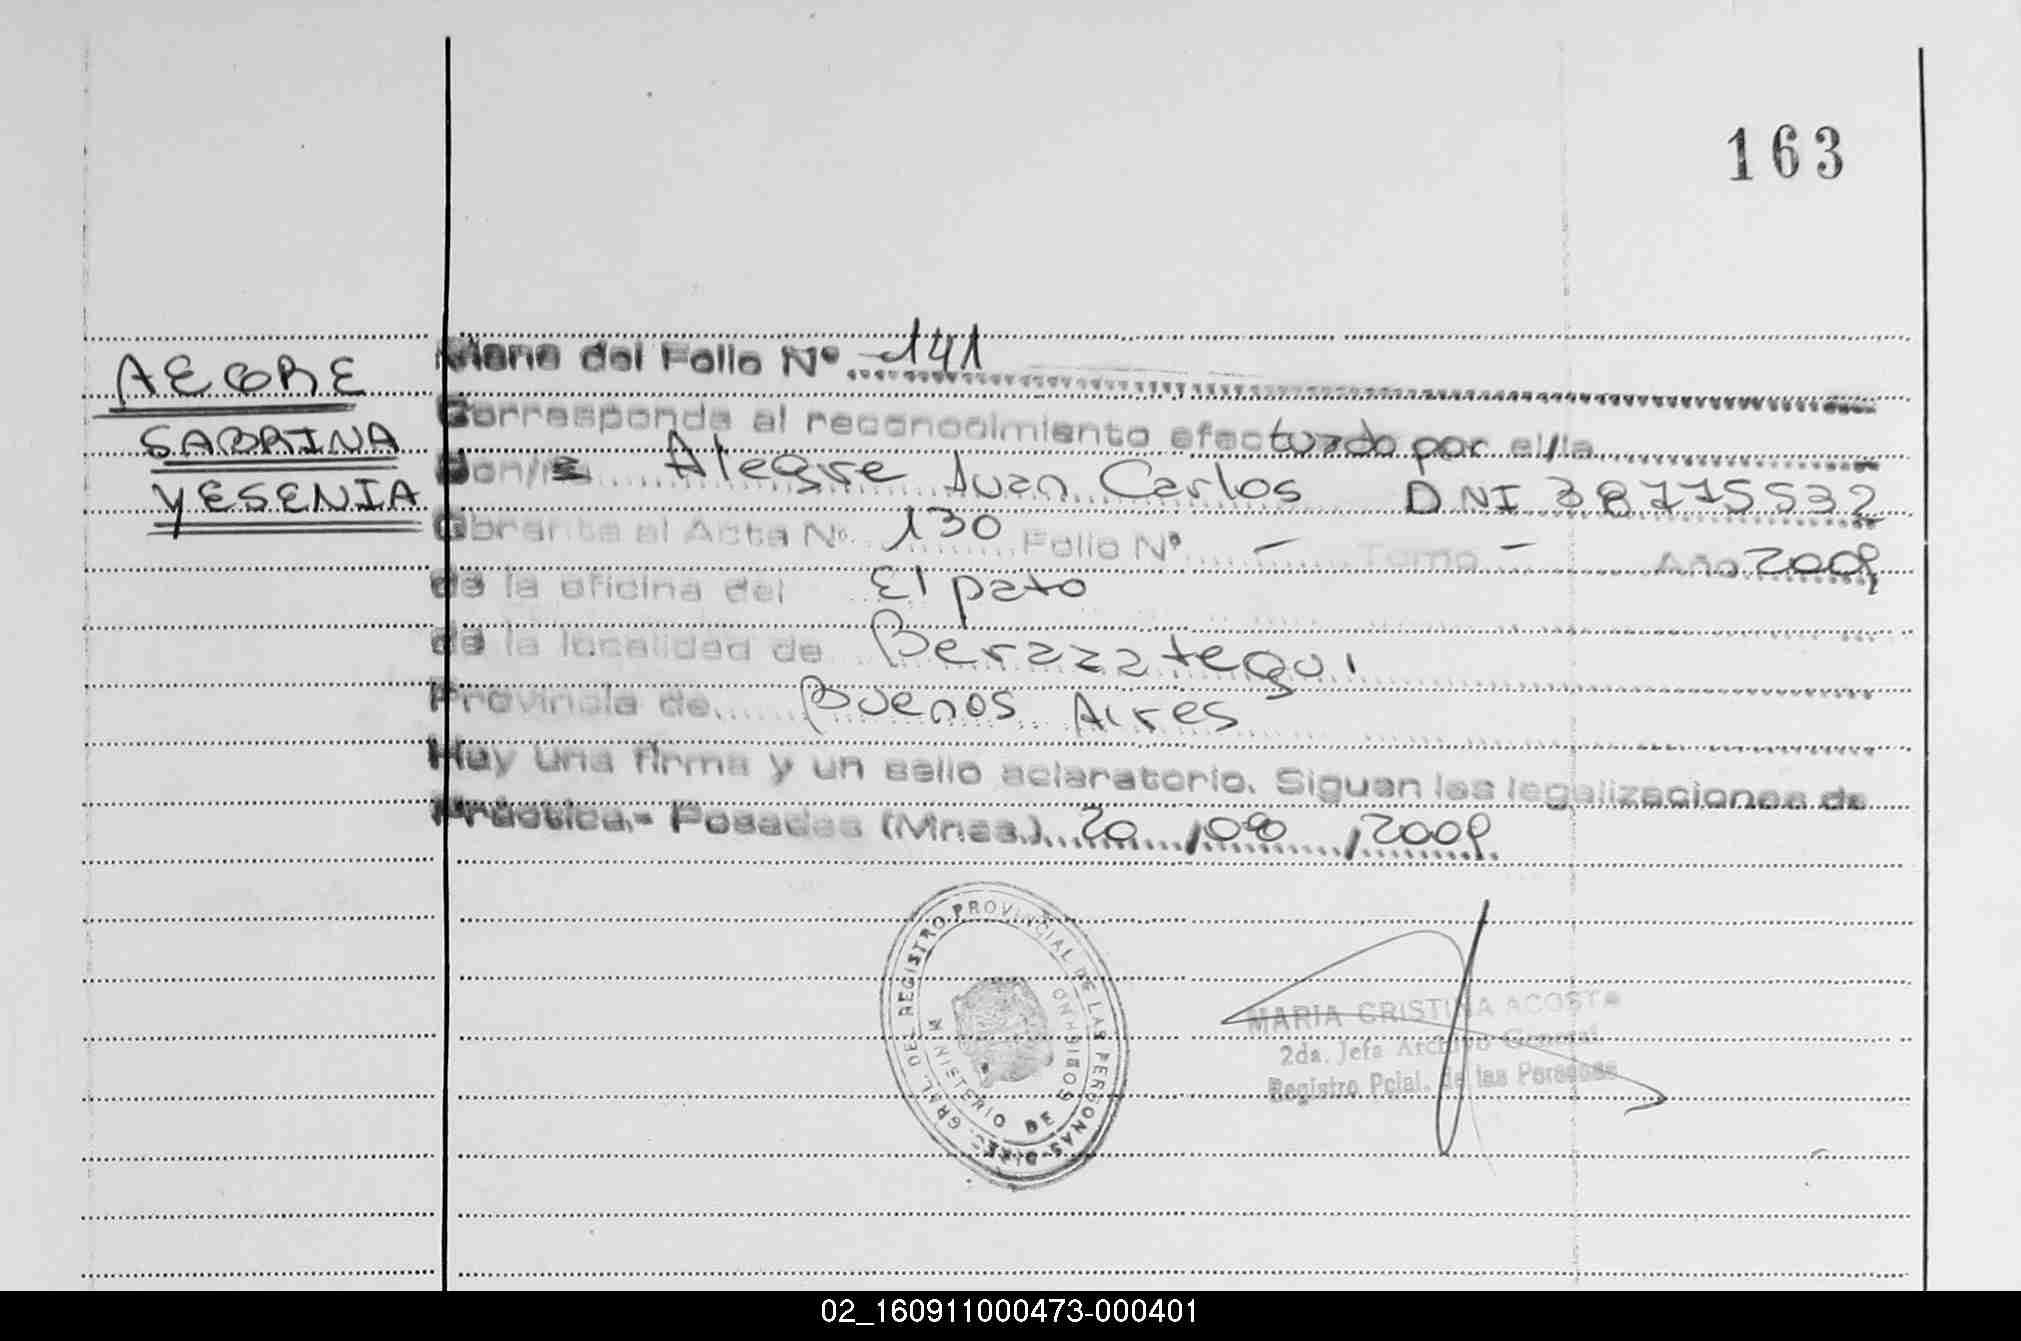 163
ALEGRE
SABRINA
YESENIA
Viene del Folio Nº 141
Corresponde al reconocimiento efectuado por el/la
Don/ña Alegre Juan Carlos DNI 38775532
Obrante al Acta Nº 130 Folio Nº - Tomo - Año 2009
de la oficina del El pato
de la localidad de Berazategui
Provincia de Buenos Aires
Hay una firma y un sello aclaratorio. Siguen las legalizaciones de
Práctica.- Posadas (Mnes.) 20/08/2009
DIREC. GRAL. DEL REGISTRO PROVINCIAL DE LAS PERSONAS
MINISTERIO DE GOBIERNO
MARIA CRISTINA ACOSTA
2da. Jefa Archivo General
Registro Pcial. de las Personas
02_160911000473-000401